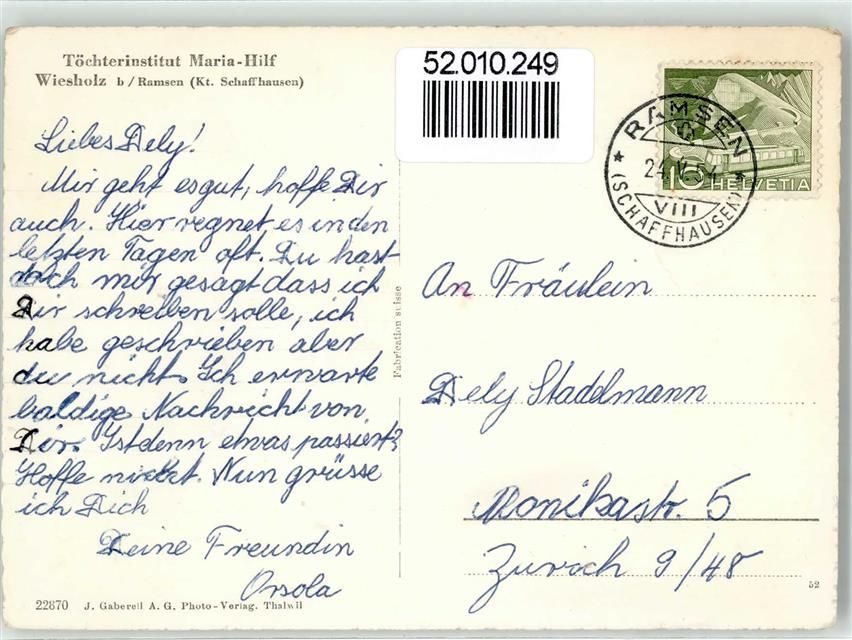 Töchterinstitut Maria-Hilf
Wiesholz b/Ramsen (Kt. Schaffhausen)
52.010.249
RAMSEN
24.V.54
VIII
(SCHAFFHAUSEN)
10 HELVETIA
Liebes Dely!
Mir geht es gut, hoffe Dir
auch. Hier regnet es in den
letzten Tagen oft. Du hast
doch mir gesagt dass ich
Dir schreiben solle, ich
habe geschrieben aber
du nicht. Ich erwarte
baldige Nachricht von
Dir. Ist denn etwas passiert?
Hoffe nicht. Nun grüsse
ich Dich
Deine Freundin
Orsola
Fabrication suisse
An Fräulein
Dely Stadelmann
Monikastr. 5
Zürich 9/48
52
22870 J. Gaberell A. G. Photo-Verlag. Thalwil